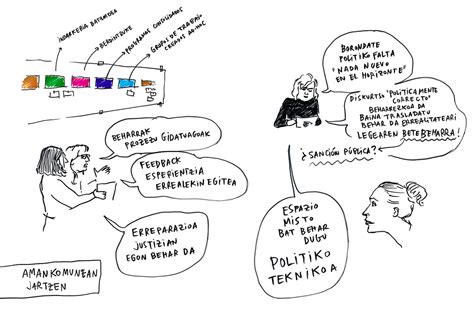 INDARKERIA BATZORDEA
BERDINTASUNA
PROGRAMAS CONSOLIDADOS
GRUPOS DE TRABAJO
CREADOS AD-HOC
BEHARRAK
PROZEZU GIDATUAGOAK
FEEDBACK
ESPERIENTZIA
ERREALEKIN EGITEA
ERREPARAZIOA
JUSTIZIAN
EGON BEHAR DA
AMANKOMUNEAN
JARTZEN
BORONDATE
POLITIKO FALTA
"NADA NUEVO
EN EL HORIZONTE"
DISKURTSO "POLITICAMENTE
CORRECTO"
BEHARREZKOA DA
BAINA TRASLADATU
BEHAR DA ERREALITATERI
LEGEAREN BETEBEHARRA!
¿SANCIÓN PÚBLICA?
ESPAZIO
MISTO
BAT BEHAR
DUGU
POLITIKO
TEKNIKOA